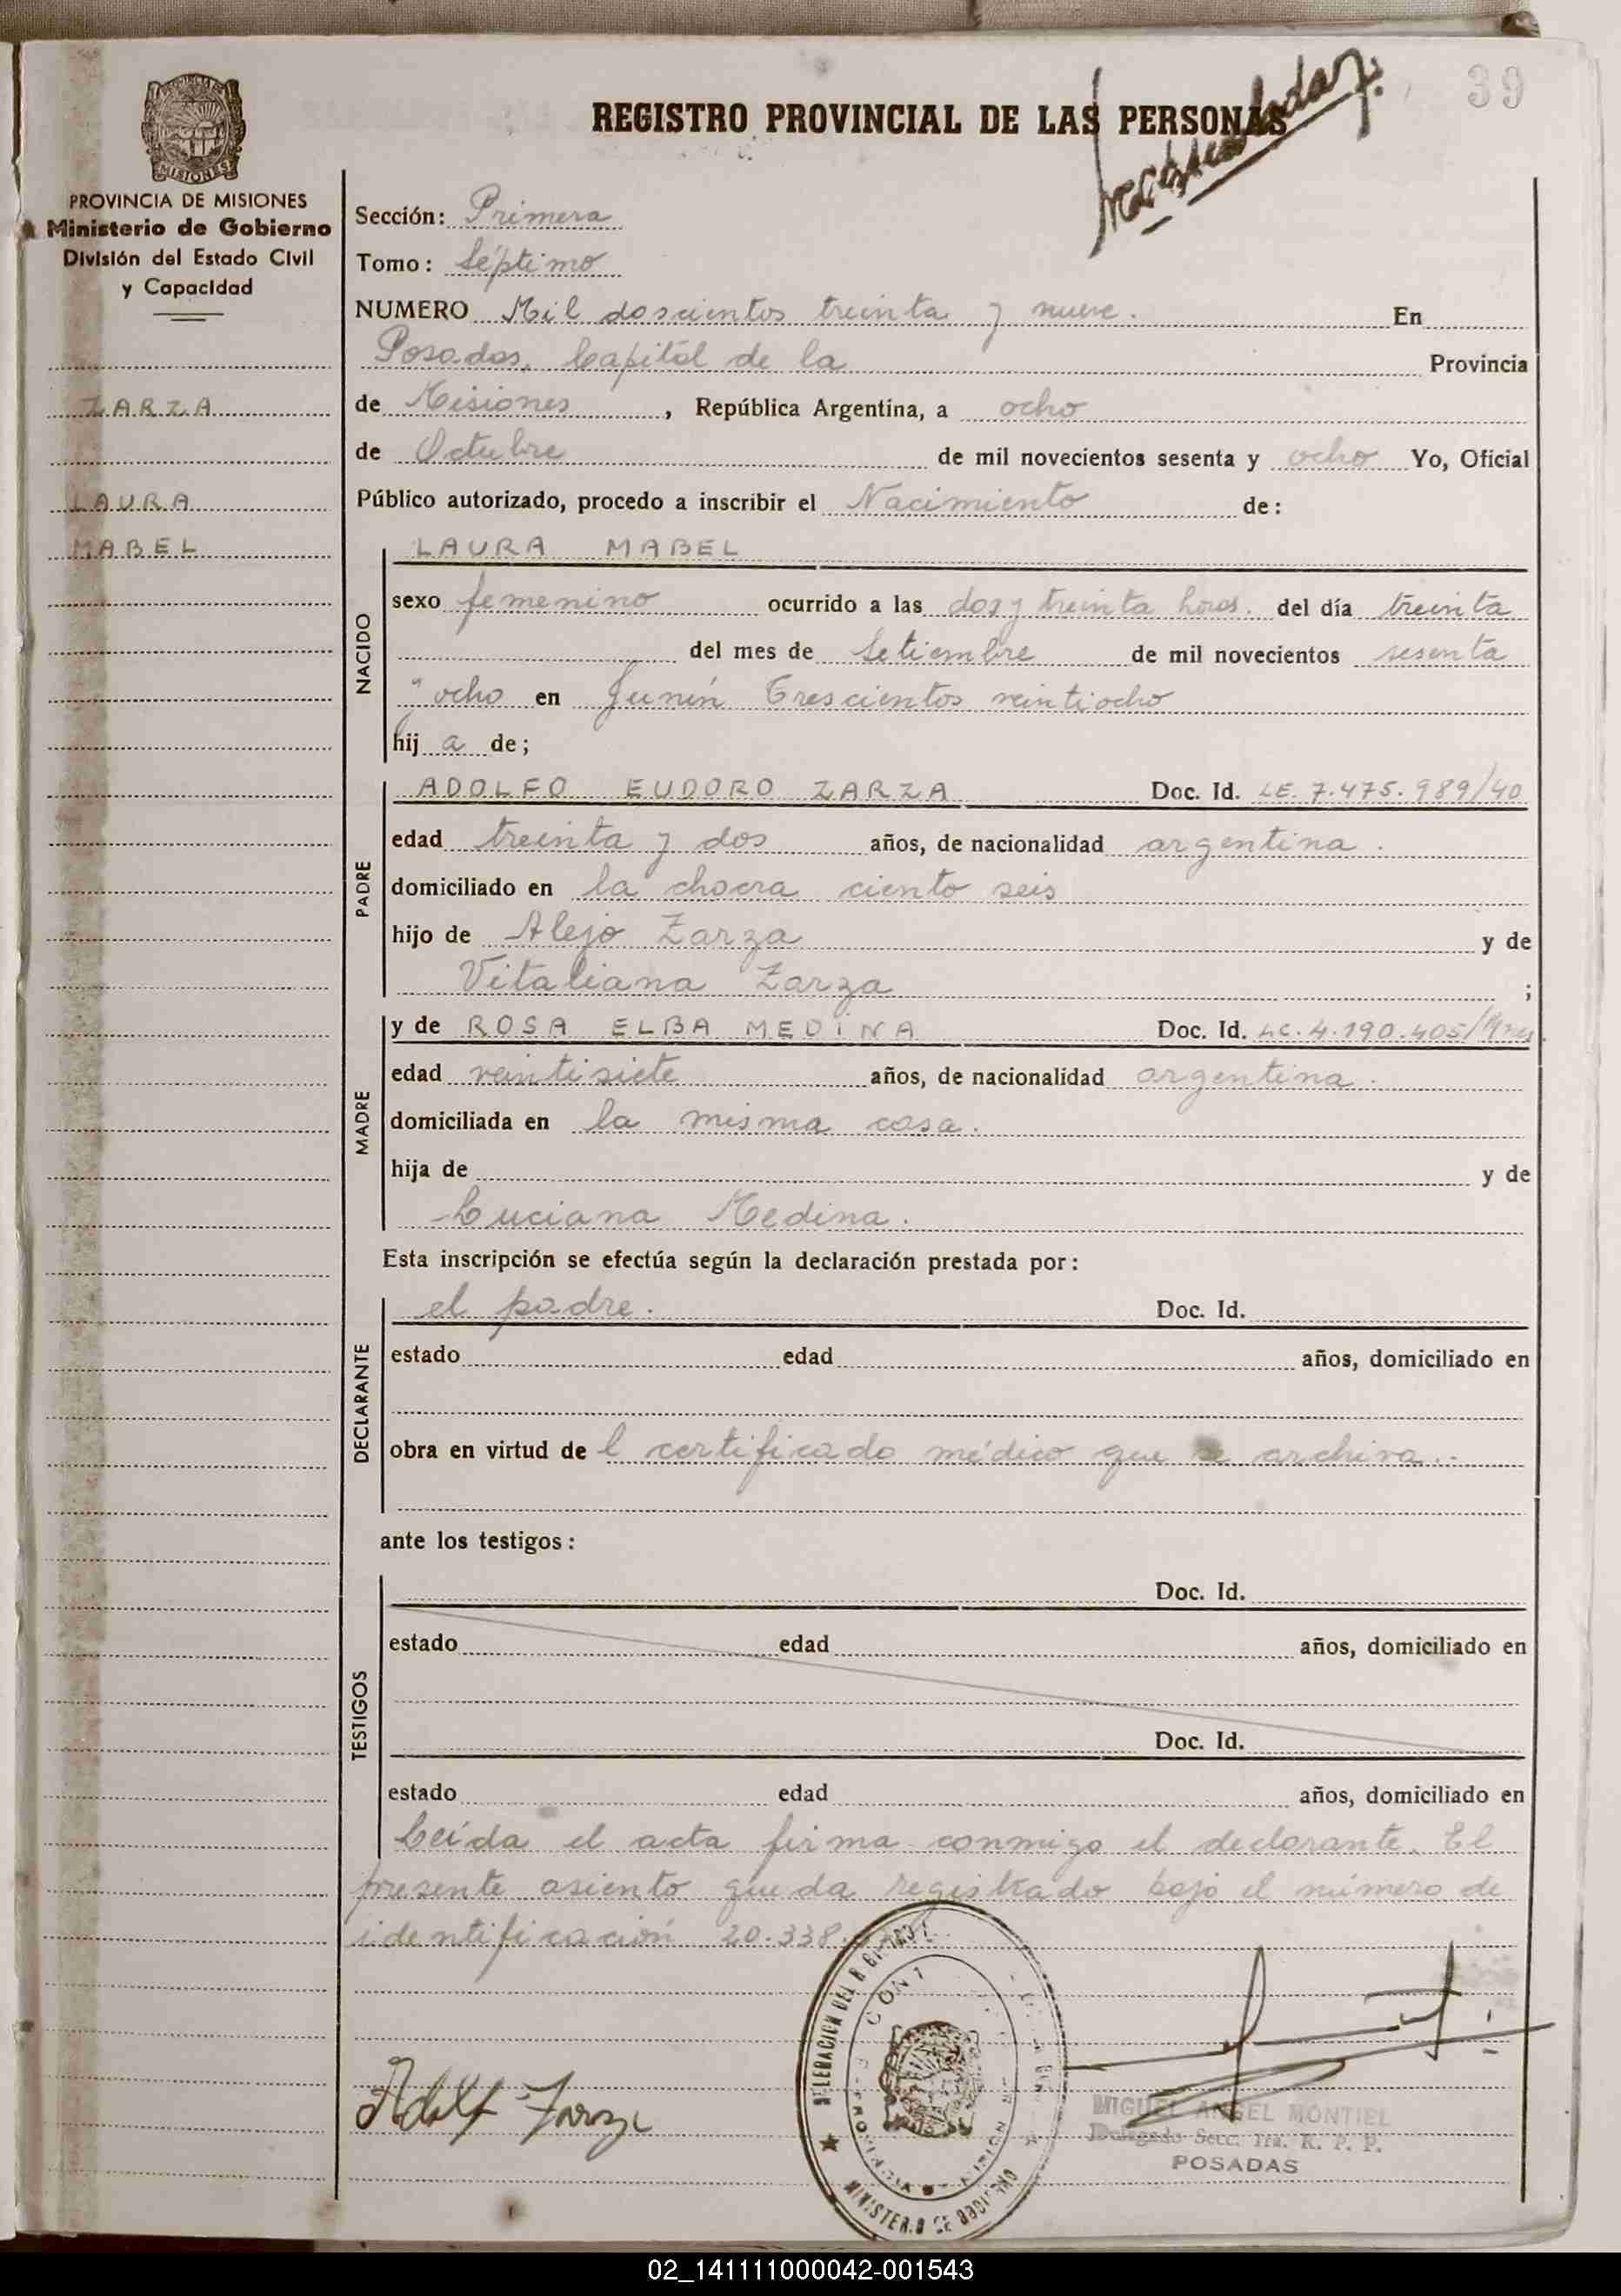 39
REGISTRO PROVINCIAL DE LAS PERSONAS
MISIONES
PROVINCIA DE MISIONES
Ministerio de Gobierno
División del Estado Civil
y Capacidad
ZARZA
LAURA
MABEL
Sección: Primera
Tomo: Séptimo
NUMERO Mil doscientos treinta y nueve. En
Posadas, Capitál de la Provincia
de Misiones, República Argentina, a ocho
de Octubre de mil novecientos sesenta y ocho Yo, Oficial
Público autorizado, procedo a inscribir el Nacimiento de:
NACIDO
LAURA MABEL
sexo femenino ocurrido a las dos y treinta horas. del día treinta
del mes de Setiembre de mil novecientos sesenta
y ocho en Junín Trescientos veintiocho
hij a de;
PADRE
ADOLFO EUDORO ZARZA Doc. Id. LE. 7.475.989/40
edad treinta y dos años, de nacionalidad argentina.
domiciliado en la chacra ciento seis
hijo de Alejo Zarza y de
Vitaliana Zarza ;
MADRE
y de ROSA ELBA MEDINA Doc. Id. LC. 4.190.405/
edad veintisiete años, de nacionalidad argentina.
domiciliada en la misma casa.
hija de y de
Luciana Medina.
Esta inscripción se efectúa según la declaración prestada por:
DECLARANTE
el padre. Doc. Id.
estado edad años, domiciliado en
obra en virtud de l certificado médico que se archiva.
ante los testigos:
TESTIGOS
Doc. Id.
estado edad años, domiciliado en
Doc. Id.
estado edad años, domiciliado en
Leída el acta firma conmigo el declarante. El
presente asiento queda registrado bajo el número de
identificación 20.338.
Adolf Zarza
MINISTERIO DE GOBIERNO
MIGUEL ANGEL MONTIEL
Delegado Secc. 1ra. R. P. P.
POSADAS
02_141111000042-001543